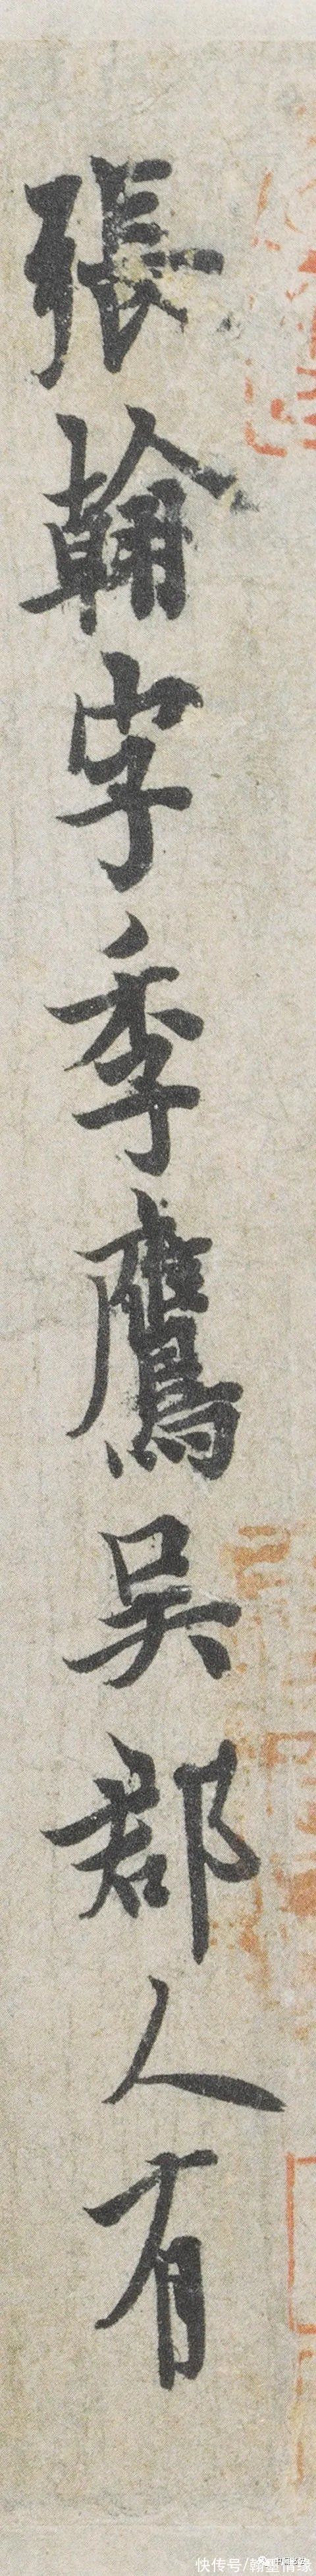 張翰字季鷹吳郡人有
快传号/翰墨情缘